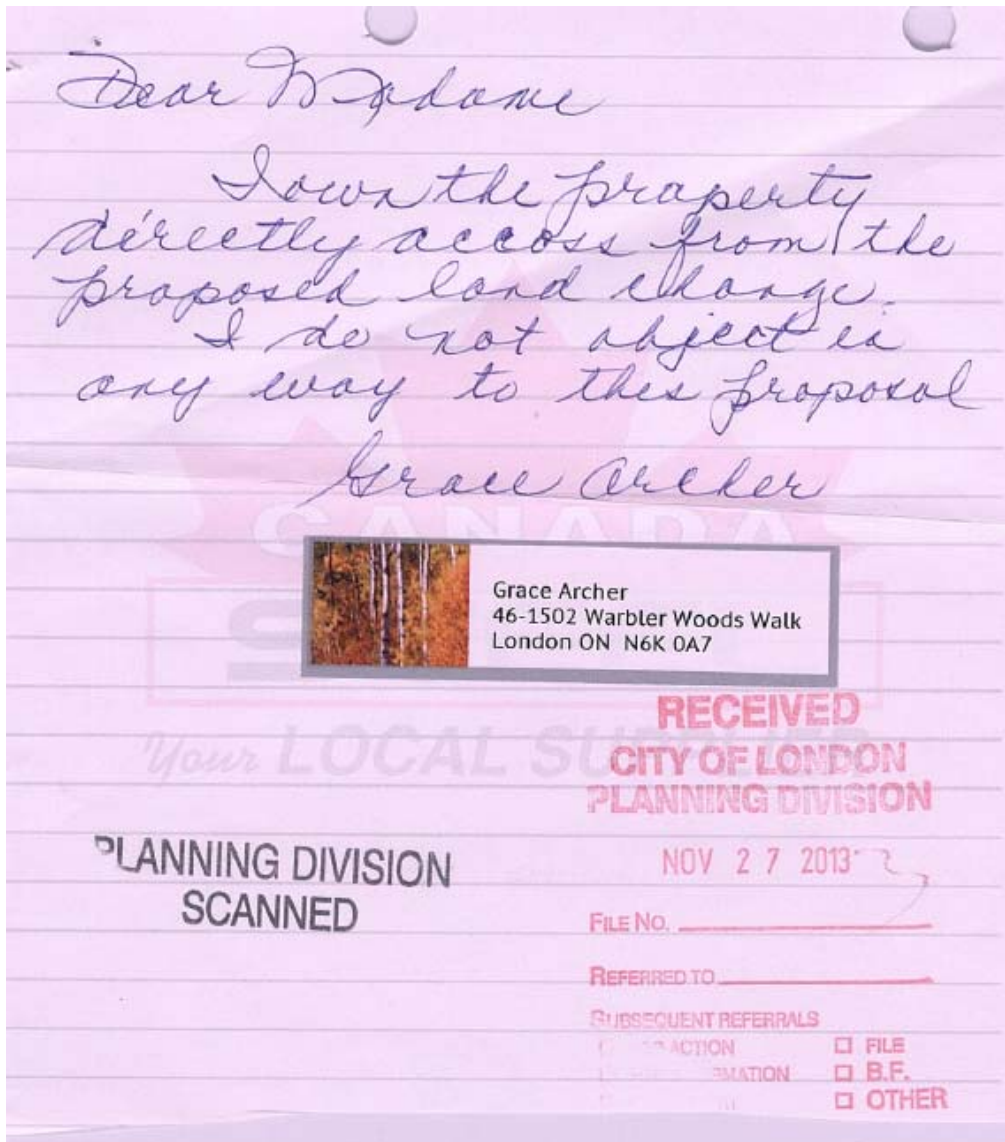 Dear Madame
I own the property
directly accoss from the
proposed land change.
I do not object in
any way to this proposal
Grace Archer
CANADA
Grace Archer
46-1502 Warbler Woods Walk
London ON N6K 0A7
RECEIVED
Your LOCAL
CITY OF LONDON
PLANNING DIVISION
PLANNING DIVISION
SCANNED
NOV 27 2013
FILE NO.
REFERRED TO
SUBSEQUENT REFERRALS
ACTION □ FILE
□ B.F.
□ OTHER